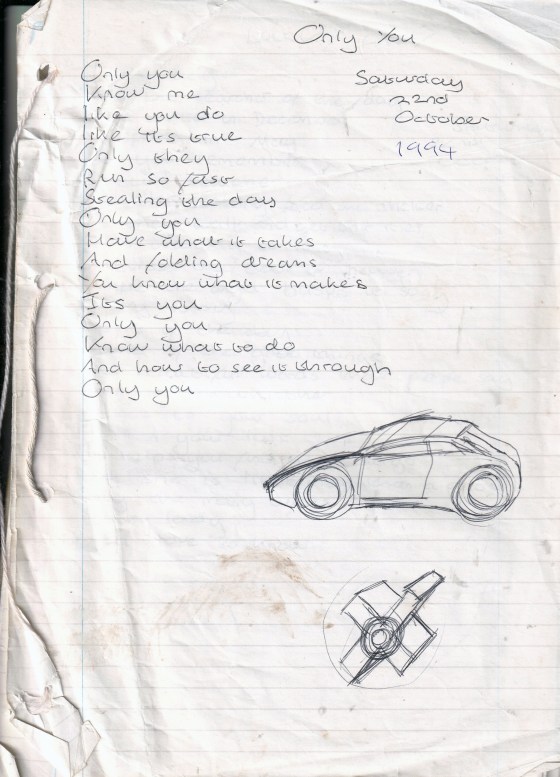 Only You
Saturday
22nd
October
1994
Only you
Know me
Like you do
Like its true
Only they
Run so fast
Stealing the day
Only you
Have what it takes
And folding dreams
You know what it makes
Its you
Only you
Know what to do
And how to see it through
Only you